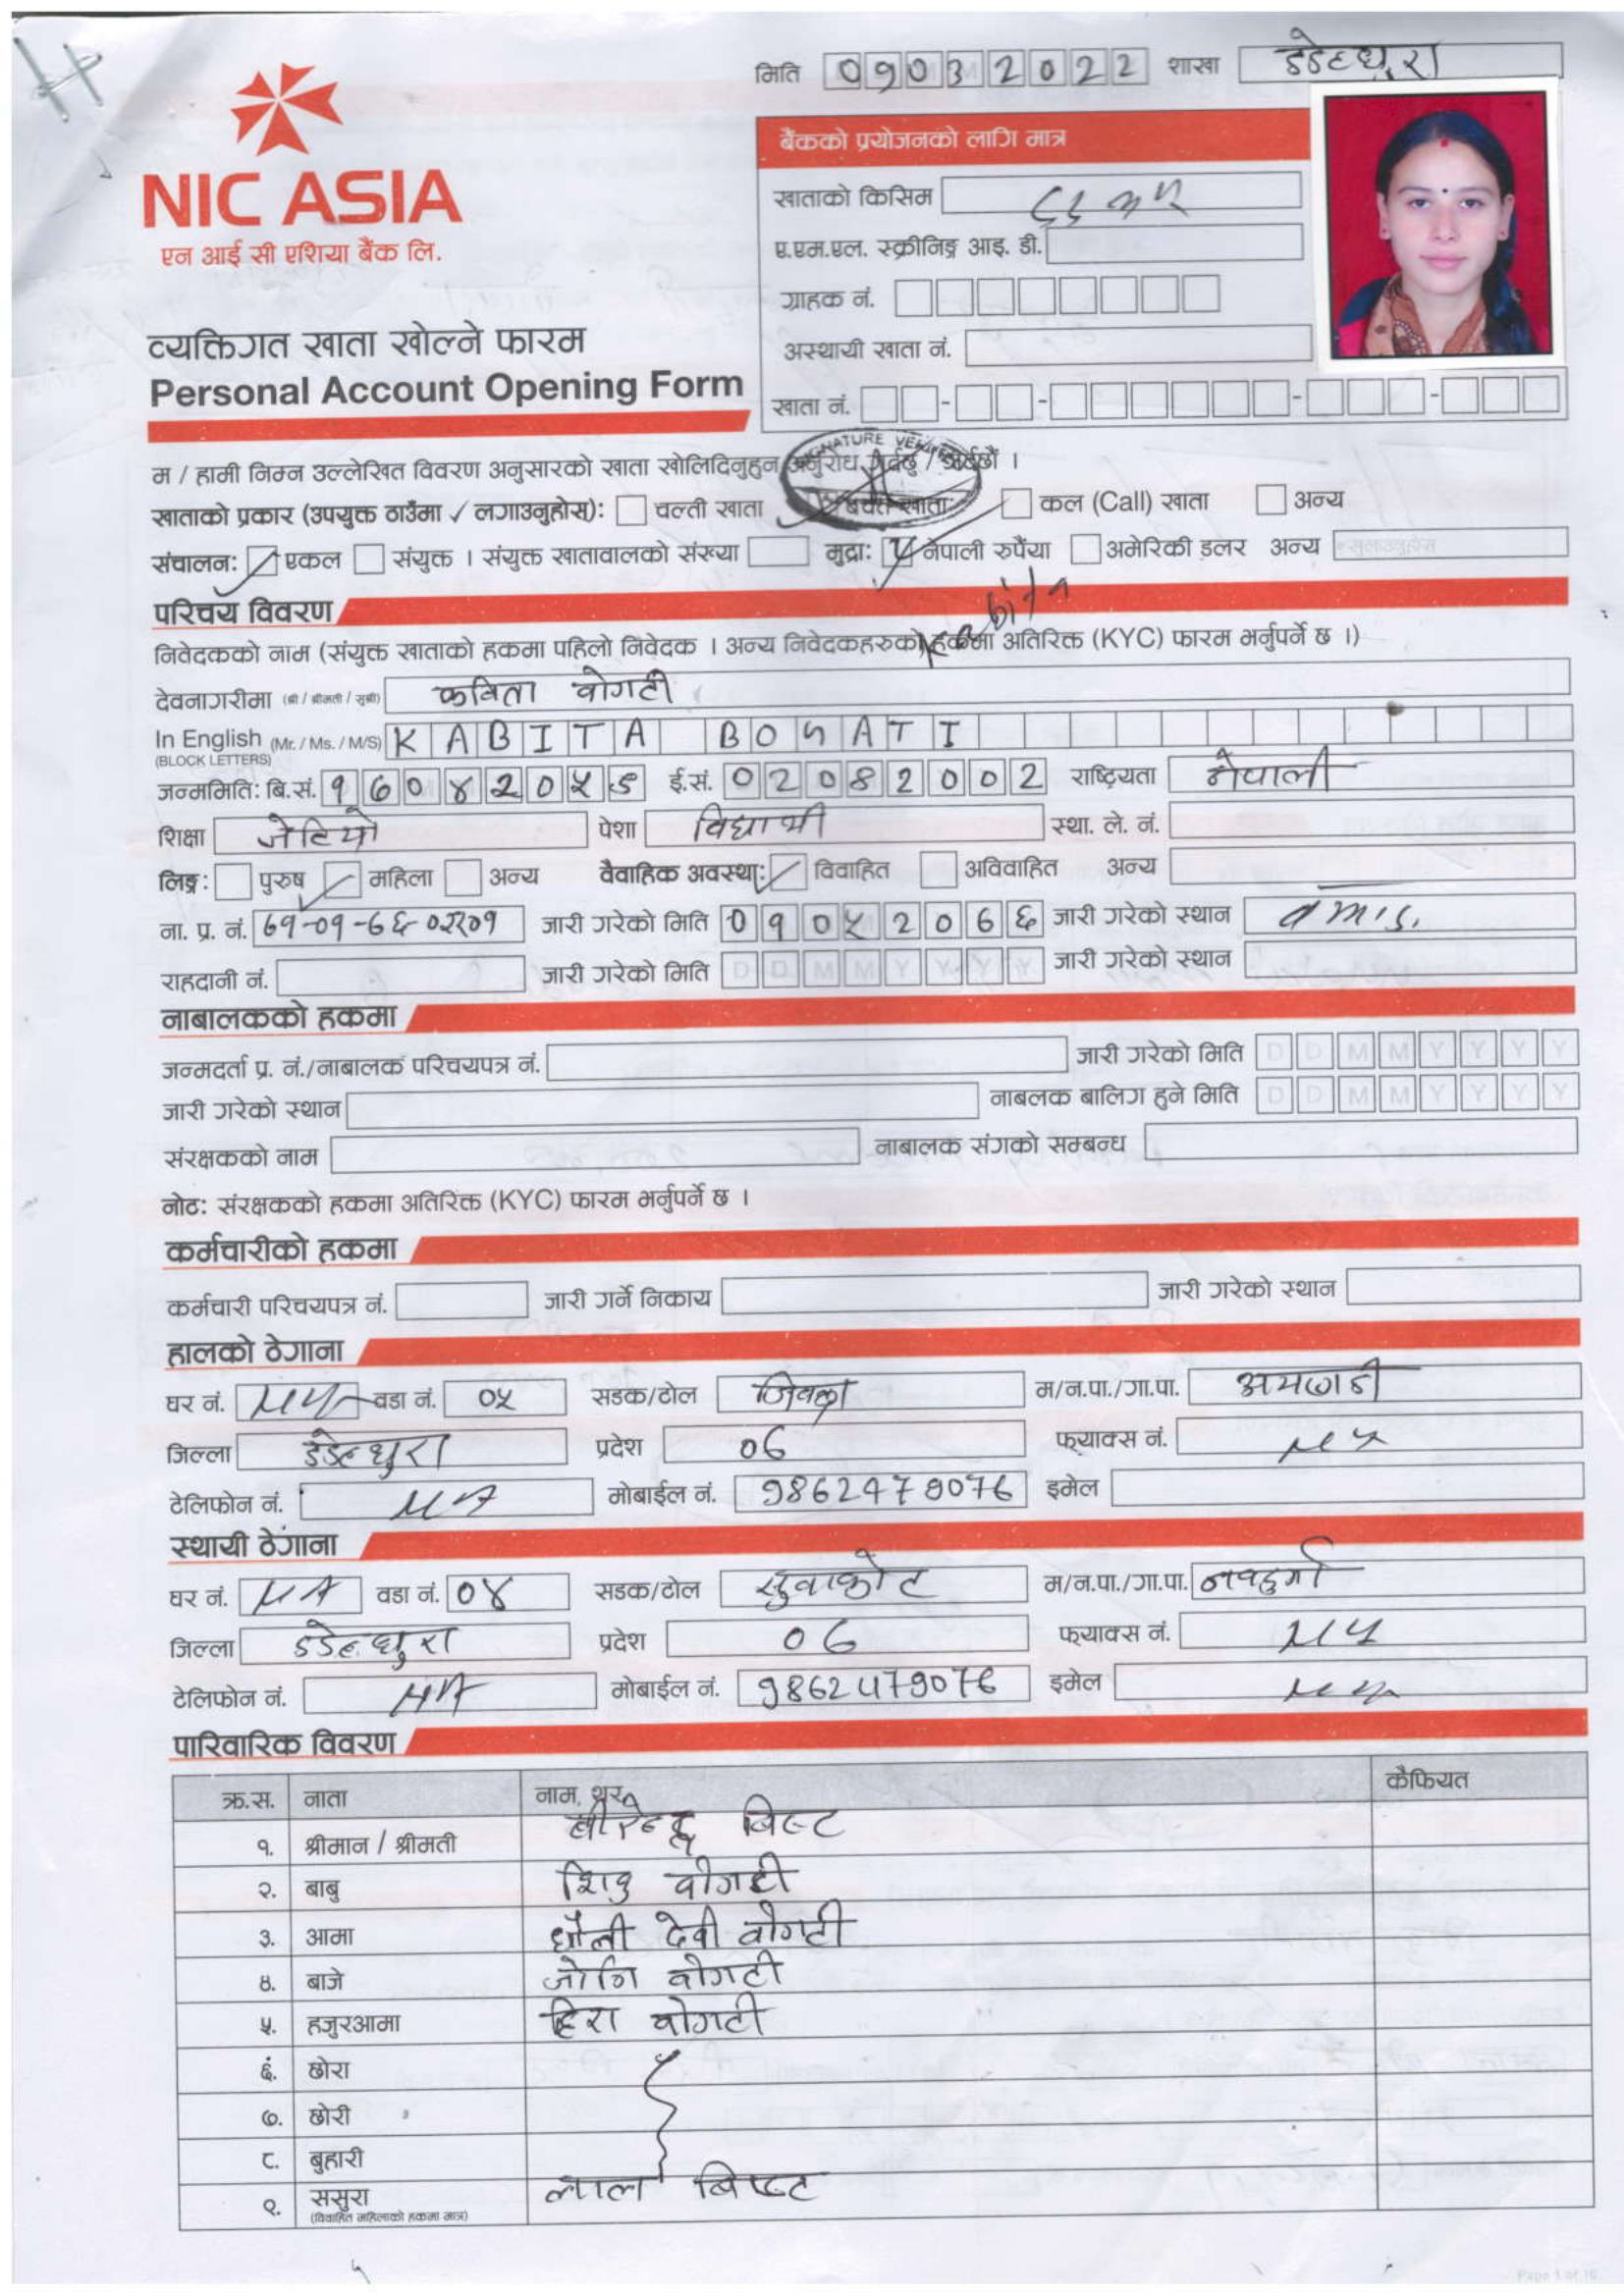 मिति 09032022 शाखा डडेल्धुरा
NIC ASIA
एन आई सी एशिया बैंक लि.
बैंकको प्रयोजनको लागि मात्र
खाताको किसिम
ए.एम.एल. स्क्रीनिङ्ग आइ. डी.
ग्राहक नं.
अस्थायी खाता नं.
खाता नं.
व्यक्तिगत खाता खोल्ने फारम
Personal Account Opening Form
SIGNATURE VERIFIED
म / हामी निम्न उल्लेखित विवरण अनुसारको खाता खोलिदिनुहुन अनुरोध गर्दछु / गर्दछौं ।
खाताको प्रकार (उपयुक्त ठाउँमा ✓ लगाउनुहोस्): चल्ती खाता बचत खाता कल (Call) खाता अन्य
संचालन: एकल संयुक्त । संयुक्त खातावालको संख्या मुद्रा: नेपाली रुपैंया अमेरिकी डलर अन्य
परिचय विवरण
निवेदकको नाम (संयुक्त खाताको हकमा पहिलो निवेदक । अन्य निवेदकहरुको हकमा अतिरिक्त (KYC) फारम भर्नुपर्ने छ ।)
देवनागरीमा (श्री / श्रीमती / सुश्री) कविता वोगटी
In English (Mr. / Ms. / M/S) KABITA BOGATI
(BLOCK LETTERS)
जन्ममिति: बि.सं. ई.सं. 02082002 राष्ट्रियता नेपाली
शिक्षा पेशा विद्यार्थी स्था. ले. नं.
लिङ्ग: पुरुष महिला अन्य वैवाहिक अवस्था: विवाहित अविवाहित अन्य
ना. प्र. नं. जारी गरेको मिति जारी गरेको स्थान
राहदानी नं. जारी गरेको मिति DDMMYYYY जारी गरेको स्थान
नाबालकको हकमा
जन्मदर्ता प्र. नं./नाबालक परिचयपत्र नं. जारी गरेको मिति DDMMYYYY
जारी गरेको स्थान नाबलक बालिग हुने मिति DDMMYYYY
संरक्षकको नाम नाबालक संगको सम्बन्ध
नोट: संरक्षकको हकमा अतिरिक्त (KYC) फारम भर्नुपर्ने छ ।
कर्मचारीको हकमा
कर्मचारी परिचयपत्र नं. जारी गर्ने निकाय जारी गरेको स्थान
हालको ठेगाना
घर नं. वडा नं. 0५ सडक/टोल म/न.पा./गा.पा.
जिल्ला डडेल्धुरा प्रदेश 06 फ्याक्स नं.
टेलिफोन नं. NA मोबाईल नं. 9862479076 इमेल
स्थायी ठेगाना
घर नं. NA वडा नं. 0४ सडक/टोल म/न.पा./गा.पा. नवदुर्गा
जिल्ला डडेल्धुरा प्रदेश 06 फ्याक्स नं.
टेलिफोन नं. NA मोबाईल नं. 9862479076 इमेल
पारिवारिक विवरण
क्र.स. नाता नाम, थर कैफियत
१. श्रीमान / श्रीमती वीरेन्द्र बिष्ट
२. बाबु वोगटी
३. आमा धौली देवी वोगटी
४. बाजे जोगि वोगटी
५. हजुरआमा हिरा वोगटी
६. छोरा
७. छोरी
८. बुहारी
९. ससुरा लाल बिष्ट
(विवाहित महिलाको हकमा मात्र)